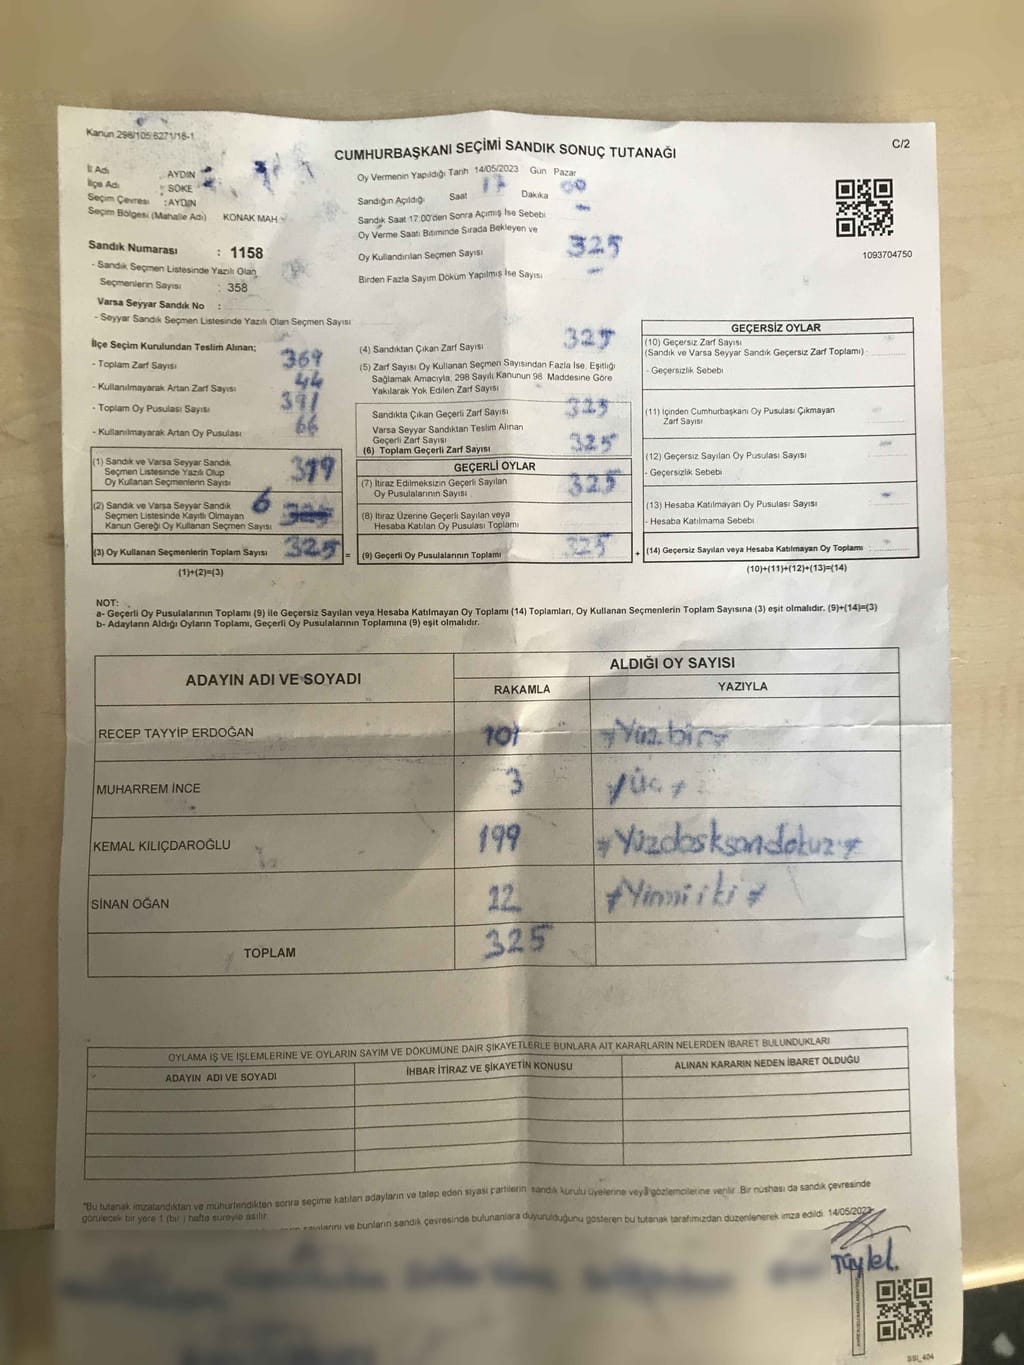 Kanun 298/105 6271/18-1
C/2
CUMHURBAŞKANI SEÇİMİ SANDIK SONUÇ TUTANAĞI
İl Adı : AYDIN
İlçe Adı : SÖKE
Seçim Çevresi : AYDIN
Seçim Bölgesi (Mahalle Adı) KONAK MAH
Sandık Numarası : 1158
- Sandık Seçmen Listesinde Yazılı Olan
Seçmenlerin Sayısı : 358
Varsa Seyyar Sandık No :
- Seyyar Sandık Seçmen Listesinde Yazılı Olan Seçmen Sayısı
Oy Vermenin Yapıldığı Tarih 14/05/2023 Gün Pazar
Sandığın Açıldığı Saat 17 Dakika 00
Sandık Saat 17:00'den Sonra Açımış İse Sebebi
Oy Verme Saati Bitiminde Sırada Bekleyen ve
Oy Kullandırılan Seçmen Sayısı 325
Birden Fazla Sayım Döküm Yapılmış İse Sayısı
1093704750
İlçe Seçim Kurulundan Teslim Alınan;
- Toplam Zarf Sayısı 369
- Kullanılmayarak Artan Zarf Sayısı 44
- Toplam Oy Pusulası Sayısı 391
- Kullanılmayarak Artan Oy Pusulası 66
(1) Sandık ve Varsa Seyyar Sandık
Seçmen Listesinde Yazılı Olup
Oy Kullanan Seçmenlerin Sayısı 319
(2) Sandık ve Varsa Seyyar Sandık
Seçmen Listesinde Kayıtlı Olmayan
Kanun Gereği Oy Kullanan Seçmen Sayısı 6
(3) Oy Kullanan Seçmenlerin Toplam Sayısı 325 =
(1)+(2)=(3)
(4) Sandıktan Çıkan Zarf Sayısı 325
(5) Zarf Sayısı Oy Kullanan Seçmen Sayısından Fazla İse, Eşitliği
Sağlamak Amacıyla, 298 Sayılı Kanunun 98. Maddesine Göre
Yakılarak Yok Edilen Zarf Sayısı
Sandıkta Çıkan Geçerli Zarf Sayısı 325
Varsa Seyyar Sandıktan Teslim Alınan
Geçerli Zarf Sayısı
(6) Toplam Geçerli Zarf Sayısı 325
GEÇERLİ OYLAR
(7) İtiraz Edilmeksizin Geçerli Sayılan
Oy Pusulalarının Sayısı 325
(8) İtiraz Üzerine Geçerli Sayılan veya
Hesaba Katılan Oy Pusulası Toplamı
(9) Geçerli Oy Pusulalarının Toplamı 325 +
GEÇERSİZ OYLAR
(10) Geçersiz Zarf Sayısı
(Sandık ve Varsa Seyyar Sandık Geçersiz Zarf Toplamı)
- Geçersizlik Sebebi
(11) İçinden Cumhurbaşkanı Oy Pusulası Çıkmayan
Zarf Sayısı
(12) Geçersiz Sayılan Oy Pusulası Sayısı
- Geçersizlik Sebebi
(13) Hesaba Katılmayan Oy Pusulası Sayısı
- Hesaba Katılmama Sebebi
(14) Geçersiz Sayılan veya Hesaba Katılmayan Oy Toplamı
(10)+(11)+(12)+(13)=(14)
NOT:
a- Geçerli Oy Pusulalarının Toplamı (9) ile Geçersiz Sayılan veya Hesaba Katılmayan Oy Toplamı (14) Toplamları, Oy Kullanan Seçmenlerin Toplam Sayısına (3) eşit olmalıdır. (9)+(14)=(3)
b- Adayların Aldığı Oyların Toplamı, Geçerli Oy Pusulalarının Toplamına (9) eşit olmalıdır.
ADAYIN ADI VE SOYADI ALDIĞI OY SAYISI
RAKAMLA YAZIYLA
RECEP TAYYİP ERDOĞAN 101 Yüz bir
MUHARREM İNCE 3 Üç
KEMAL KILIÇDAROĞLU 199 Yüzdoksandokuz
SİNAN OĞAN 22 Yirmi iki
TOPLAM 325
OYLAMA İŞ VE İŞLEMLERİNE VE OYLARIN SAYIM VE DÖKÜMÜNE DAİR ŞİKAYETLERLE BUNLARA AİT KARARLARIN NELERDEN İBARET BULUNDUKLARI
ADAYIN ADI VE SOYADI İHBAR İTİRAZ VE ŞİKAYETİN KONUSU ALINAN KARARIN NEDEN İBARET OLDUĞU
"Bu tutanak imzalandıktan ve mühürlendikten sonra seçime katılan adayların ve talep eden siyasi partilerin sandık kurulu üyelerine veya gözlemcilerine verilir. Bir nüshası da sandık çevresinde
görülecek bir yere 1 (bir) hafta süreyle asılır.
sayılarını ve bunların sandık çevresinde bulunanlara duyurulduğunu gösteren bu tutanak tarafımızdan düzenlenerek imza edildi. 14/05/2023
SSI_404